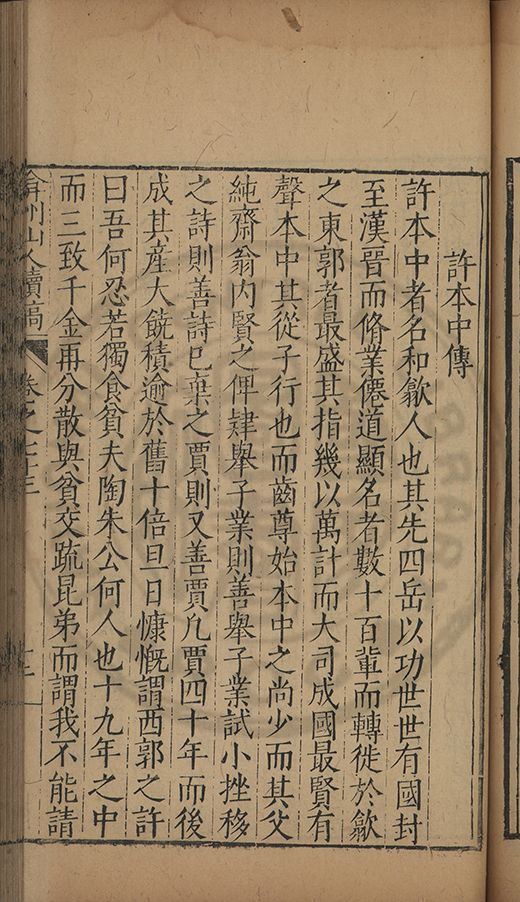 許本中傳
許本中者名和歙人也其先四岳以功世世有國封
至漢晉而脩業僊道顯名者數十百輩而轉徙於歙
之東郭者最盛其指幾以萬計而大司成國最賢有
聲本中其從子行也而齒尊始本中之尚少而其父
純齋翁内賢之俾肄舉子業則善舉子業試小挫移
之詩則善詩已棄之賈則又善賈凢賈四十年而後
成其產大饒積逾於舊十倍旦日慷慨謂西郭之許
曰吾何忍若獨食貧夫陶朱公何人也十九年之中
而三致千金再分散與貧交疏昆弟而謂我不能請
弇州山人續稿
卷之七十三